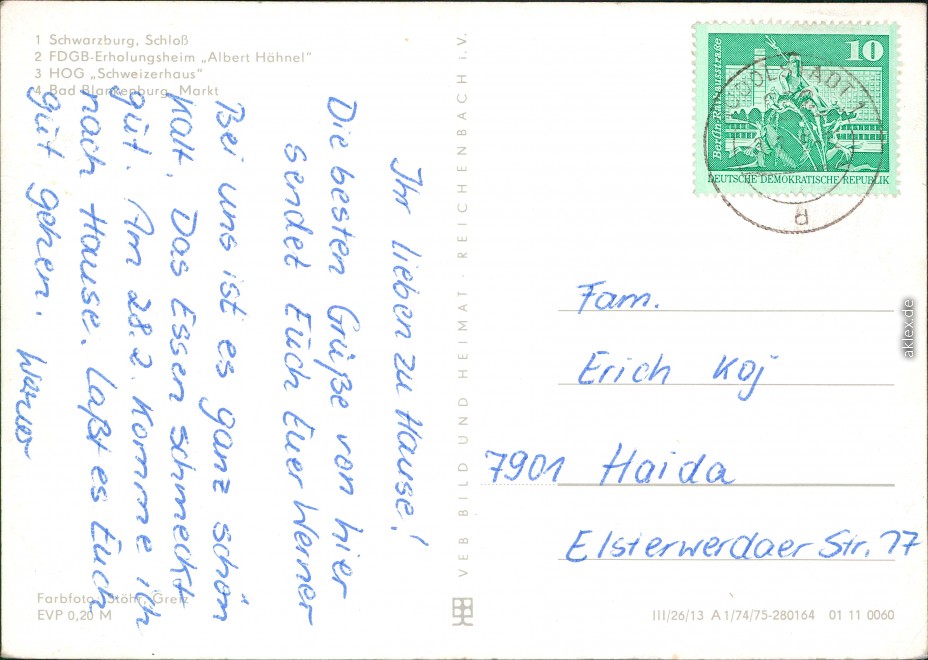 1 Schwarzburg, Schloß
2 FDGB-Erholungsheim „Albert Hähnel"
3 HOG „Schweizerhaus"
4 Bad Blankenburg, Markt
Ihr lieben zu Hause!
Die besten Grüße von hier
sendet Euch Euer Werner
Bei uns ist es ganz schön
kalt. Das Essen schmeckt
gut. Am 28.2. komme ich
nach Hause. Laßt es Euch
gut gehen.
Farbfoto: Stöhr, Greiz
EVP 0,20 M
VEB BILD UND HEIMAT · REICHENBACH i. V.
10
Berlin-Rathausstraße
DEUTSCHE DEMOKRATISCHE REPUBLIK
RUDOLSTADT 1
R
Fam.
Erich Koj
7901 Haida
Elsterwerdaer Str. 17
III/26/13 A 1/74/75-280164 01 11 0060
aklex.de